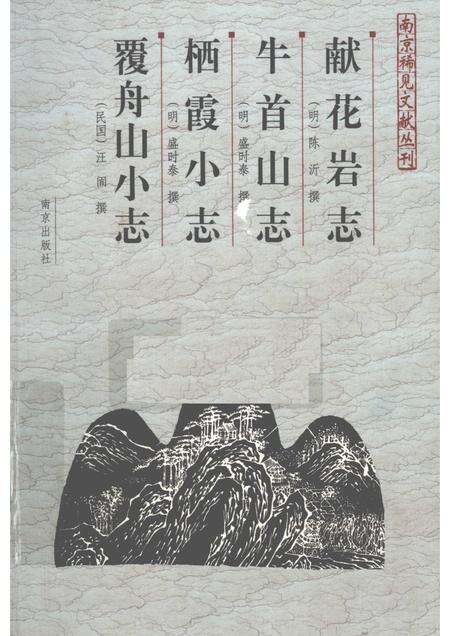 南京稀见文献丛刊
献花岩志
（明）陈沂 撰
牛首山志
（明）盛时泰 撰
栖霞小志
（明）盛时泰 撰
覆舟山小志
（民国）汪訚 撰
南京出版社